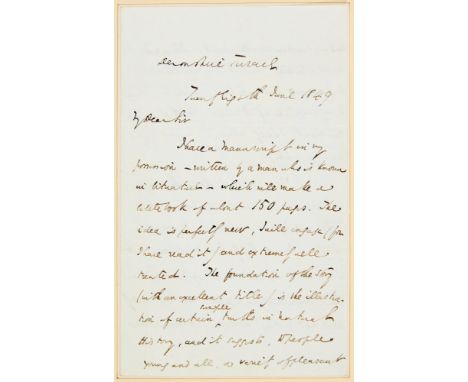 Devonshire Terrace
Twenty Eighth June 1849
My Dear Sir
I have a manuscript in my
possession – written by a man who is known
in literature – which will make a
little book of about 150 pages. The
idea is perfectly new, I will engage (for
I have read it) and extremely well
treated. The foundation of the story
(with an excellent title) is the illustra-
tion of certain simple truths in natural
History, and it suggests, to people
young and all, a variety of pleasant